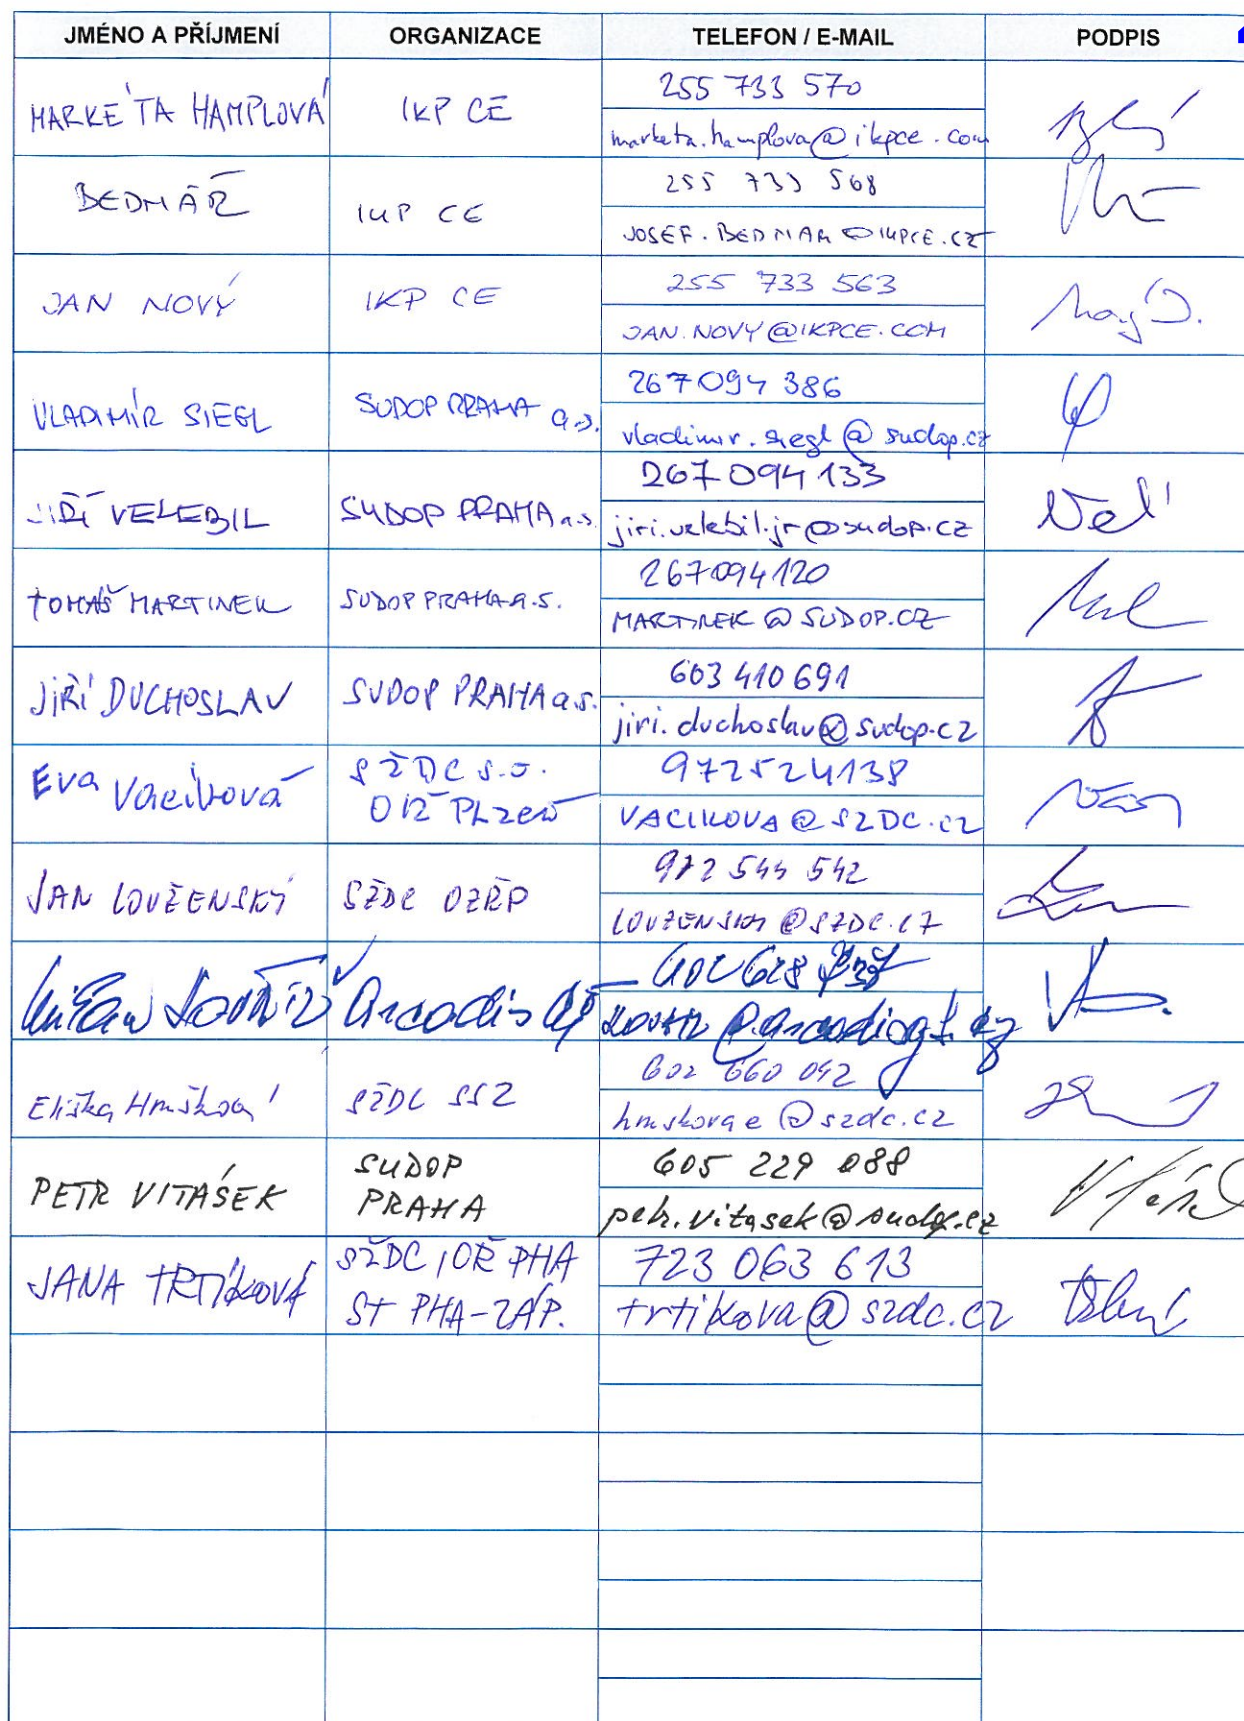 JMÉNO A PŘÍJMENÍ ORGANIZACE TELEFON / E-MAIL PODPIS
MARKÉTA HAMPLOVÁ IKP CE 255 733 570
marketa.hamplova@ikpce.com
BEDMÁŘ IKP CE 255 733 568
JOSEF.BEDMAR@IKPCE.CZ
JAN NOVÝ IKP CE 255 733 563
JAN.NOVY@IKPCE.COM
VLADIMÍR SIEGL SUDOP PRAHA a.s. 267 094 386
vladimir.siegl@sudop.cz
JIŘÍ VELEBIL SUDOP PRAHA a.s. 267 094 133
jiri.velebil.jr@sudop.cz
TOMÁŠ MARTINEK SUDOP PRAHA a.s. 267094120
MARTINEK@SUDOP.CZ
JIŘÍ DUCHOSLAV SUDOP PRAHA a.s. 603 410 691
jiri.duchoslav@sudop.cz
Eva Vacíková SŽDC s.o. 972524138
OŘ PLZEŇ VACIKOVA@SZDC.CZ
JAN LOUŽENSKÝ SŽDC 972 544 542
LOUZENSKY@SZDC.CZ
Milan Arcadis
Eliška Hmšková SŽDC SSZ 602 660 042
hmskovae@szdc.cz
PETR VITÁSEK SUDOP 605 229 088
PRAHA petr.vitasek@sudop.cz
JANA TRTÍKOVÁ SŽDC, OŘ PHA 723 063 613
ST PHA-ZÁP. trtikova@szdc.cz